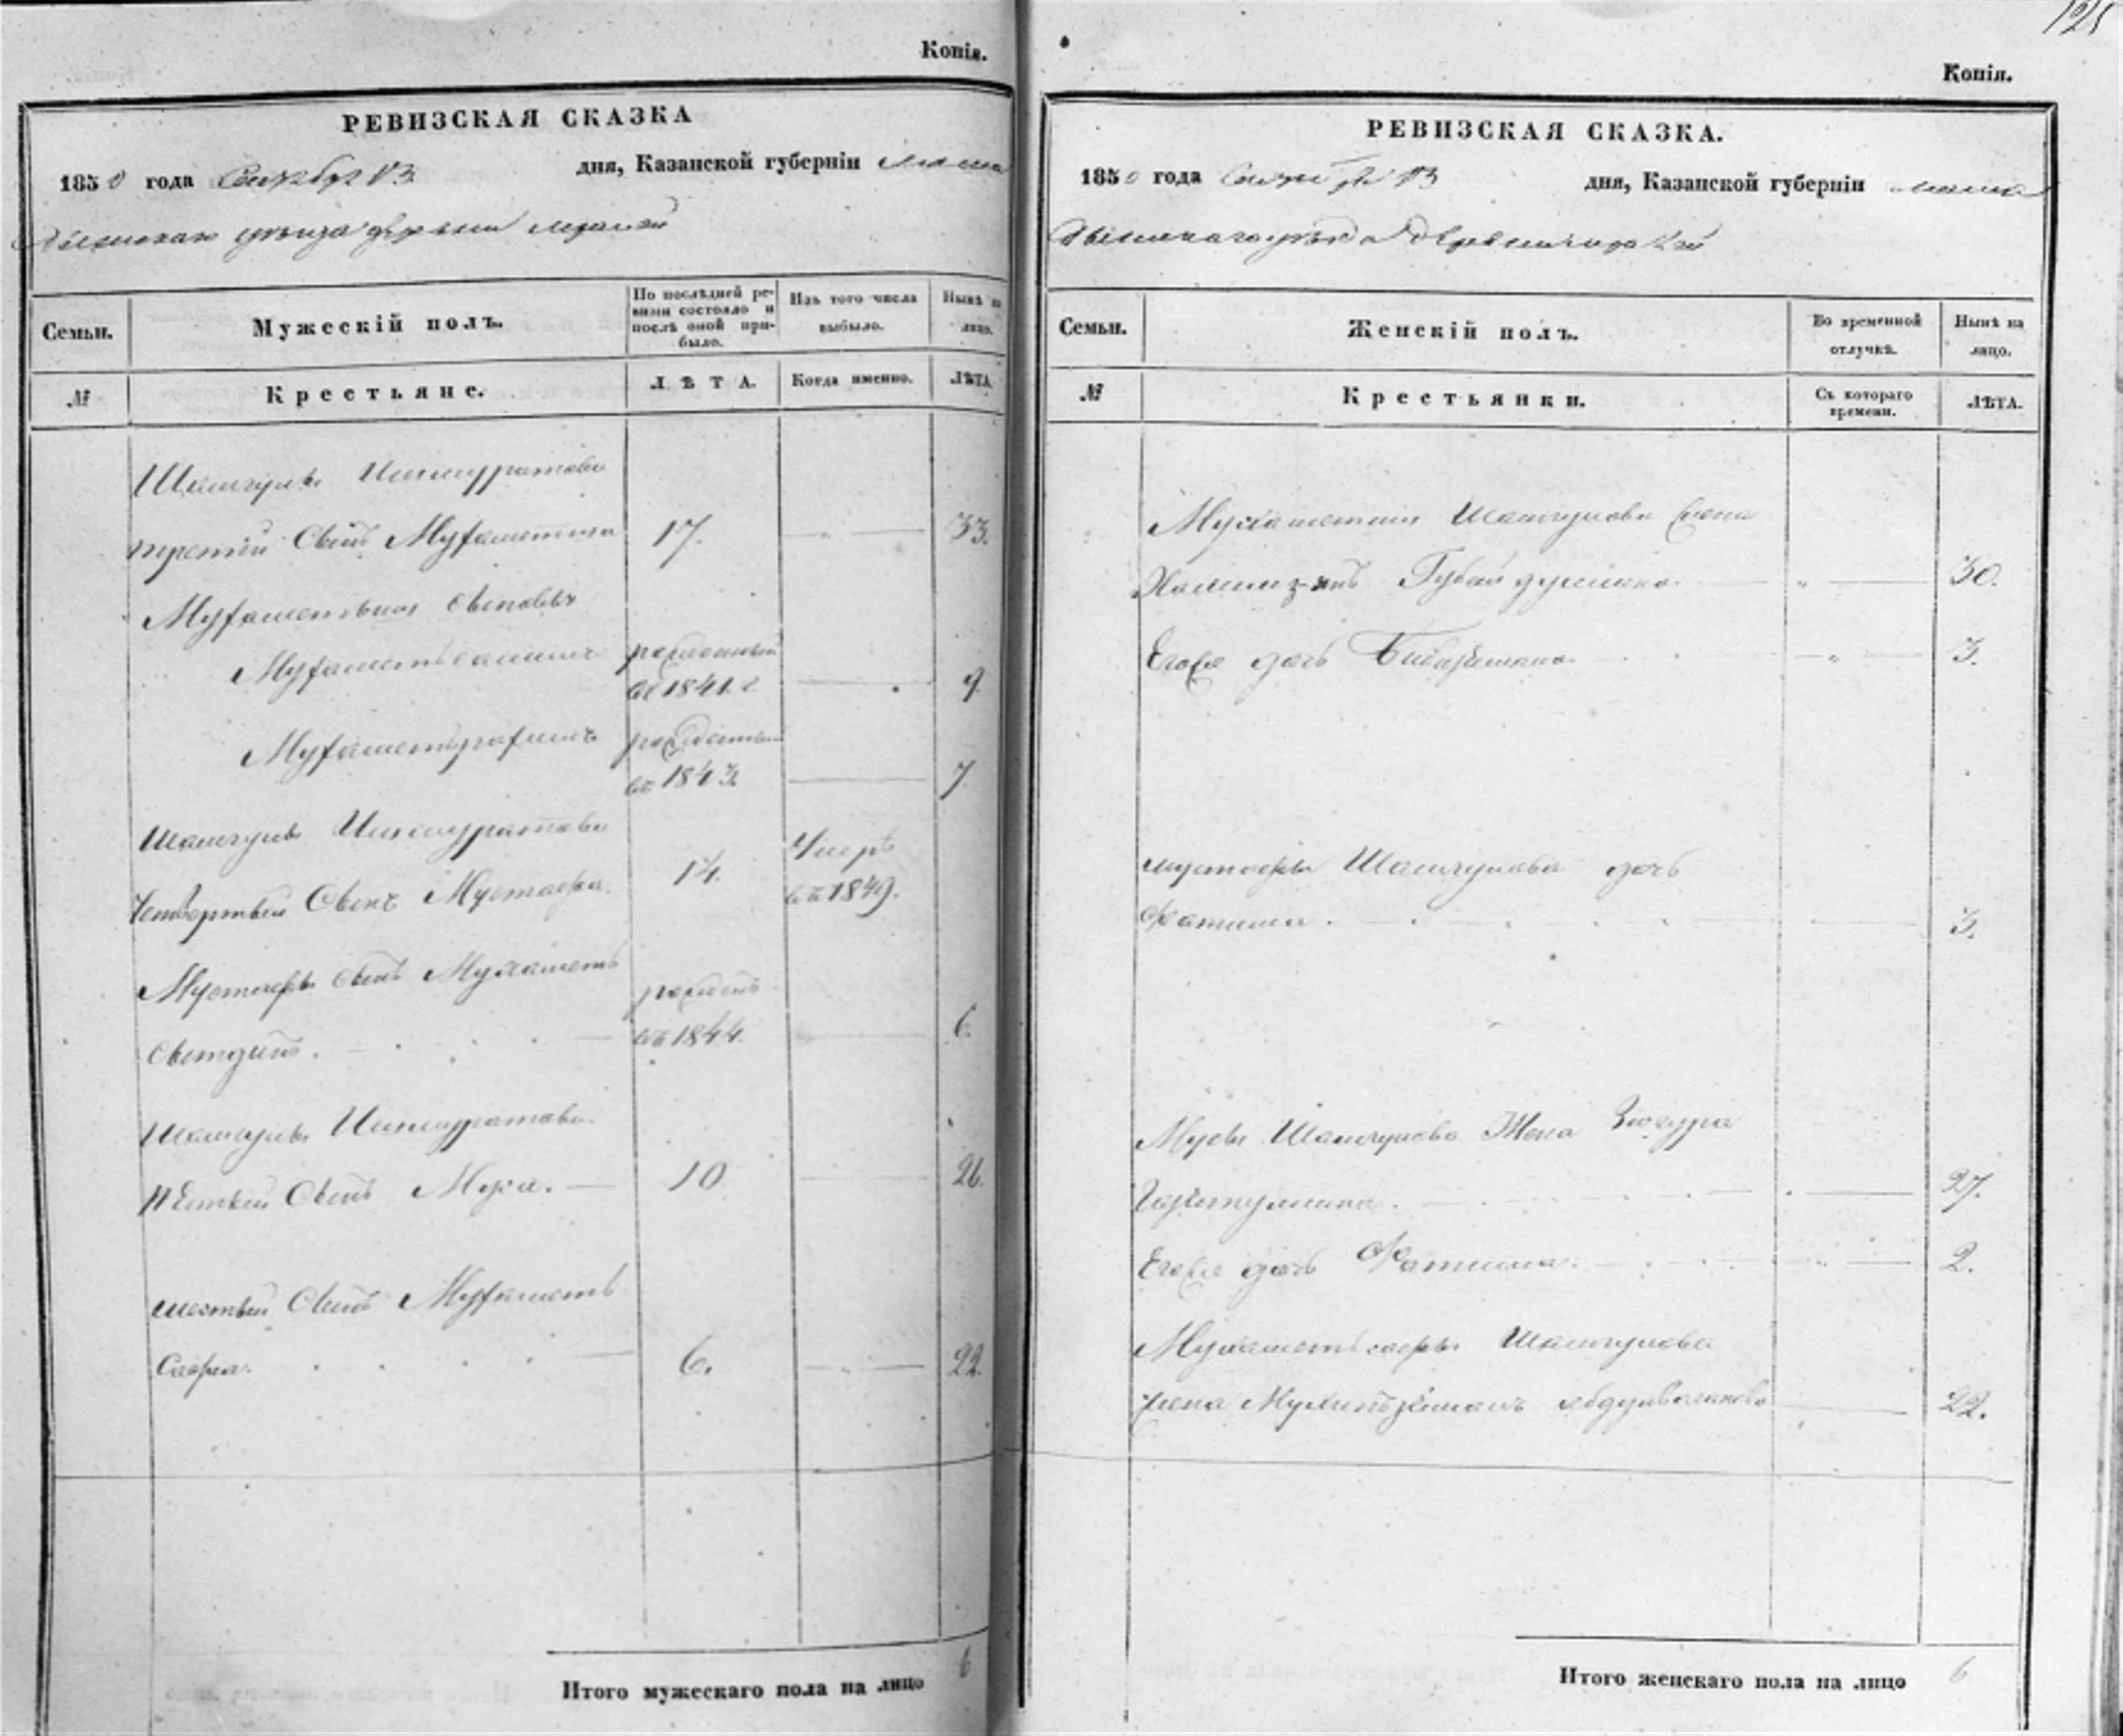 Копія.
РЕВИЗСКАЯ СКАЗКА
1850 года Октября 13 дня, Казанской губерніи Мама
дышскаго уѣзда деревни
Семьи.
Мужескій полъ.
По послѣдней ре-
визіи состояло и
послѣ оной при-
было.
Изъ того числа
выбыло.
Нынѣ на
лицо.
№
Крестьяне.
ЛѢТА.
Когда именно.
ЛѢТА.
Шамгулъ Ишмуратова
третій Сынъ Мухаметша 17. 33.
Мухаметши Сыновья
рожденный
въ 1841 г. 9
рожденный
въ 1843 7
Шамгулъ Ишмуратова Умеръ
Четвертый Сынъ Мустафа. 14. въ 1849.
Мустафы Сынъ Мухаметъ рожденъ
въ 1844. 6.
Шамгулъ Ишмуратова
Пятый Сынъ Муса. 10 26.
шестый Сынъ Мухаметъ
Сафа. 6. 22.
Итого мужескаго пола на лицо 6
125
Копія.
РЕВИЗСКАЯ СКАЗКА.
1850 года 13 дня, Казанской губерніи Мама
дышскаго уѣзда деревни
Семьи.
Женскій полъ.
Во временной
отлучкѣ.
Нынѣ на
лицо.
№
Крестьянки.
Съ котораго
времени.
ЛѢТА.
Мухаметши Шамгулова Жена
Губайдуллина 30.
Егоже дочь 3.
Мустафы Шамгулова дочь
Фатима. 3.
Мусы Шамгулова Жена Зюгура
27.
Егоже дочь Фатима. 2.
Мухаметъ сафы Шамгулова
Жена 22.
Итого женскаго пола на лицо 6